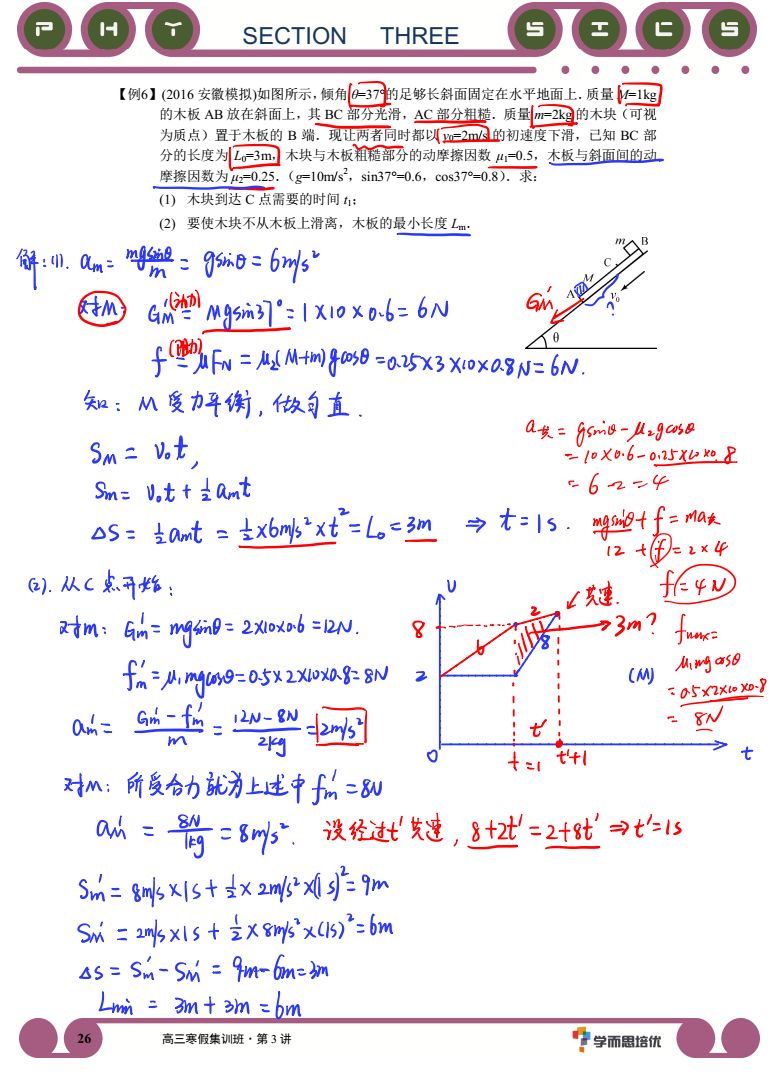 PHY SICS
SECTION THREE
【例6】(2016 安徽模拟)如图所示,倾角 θ=37°的足够长斜面固定在水平地面上．质量 M=1kg
的木板 AB 放在斜面上，其 BC 部分光滑，AC 部分粗糙．质量 m=2kg 的木块（可视
为质点）置于木板的 B 端．现让两者同时都以 v₀=2m/s 的初速度下滑，已知 BC 部
分的长度为 L₀=3m，木块与木板粗糙部分的动摩擦因数 μ₁=0.5，木板与斜面间的动
摩擦因数为 μ₂=0.25．（g=10m/s²，sin37°=0.6，cos37°=0.8）．求：
(1) 木块到达 C 点需要的时间 t₁；
(2) 要使木块不从木板上滑离，木板的最小长度 Lₘ．
m B
C
M
A
v₀
?
θ
GM'
解:(1). am = mgsinθ/m = gsinθ = 6m/s²
对M: GM'(动力) = Mgsin37° = 1×10×0.6 = 6N
f(阻力) = μFN = μ₂(M+m)gcosθ = 0.25×3×10×0.8N = 6N.
知: M 受力平衡, 做匀直.
SM = v₀t,
Sm = v₀t + ½amt
ΔS = ½amt = ½×6m/s²×t² = L₀ = 3m ⇒ t = 1s.
a共 = gsinθ - μ₂gcosθ
= 10×0.6 - 0.25×10×0.8
= 6 - 2 = 4
mgsinθ + f = ma共
12 + f = 2×4
f = 4N
fmax =
μ₁mgcosθ
= 0.5×2×10×0.8
= 8N
(2). 从C点开始:
对m: Gm' = mgsinθ = 2×10×0.6 = 12N.
fm' = μ₁mgcosθ = 0.5×2×10×0.8 = 8N
am' = (Gm' - fm')/m = (12N - 8N)/2kg = 2m/s²
υ
共速.
8
2
6
2
8
3m?
(M)
t'
0
t=1
t'+1
t
对M: 所受合力就为上述中 fm' = 8N
aM' = 8N/1kg = 8m/s². 设经过t'共速, 8+2t' = 2+8t' ⇒ t'=1s
Sm' = 8m/s×1s + ½×2m/s²×(1s)² = 9m
SM' = 2m/s×1s + ½×8m/s²×(1s)² = 6m
ΔS = Sm' - SM' = 9m - 6m = 3m
Lmin = 3m + 3m = 6m
26
高三寒假集训班·第 3 讲
学而思培优